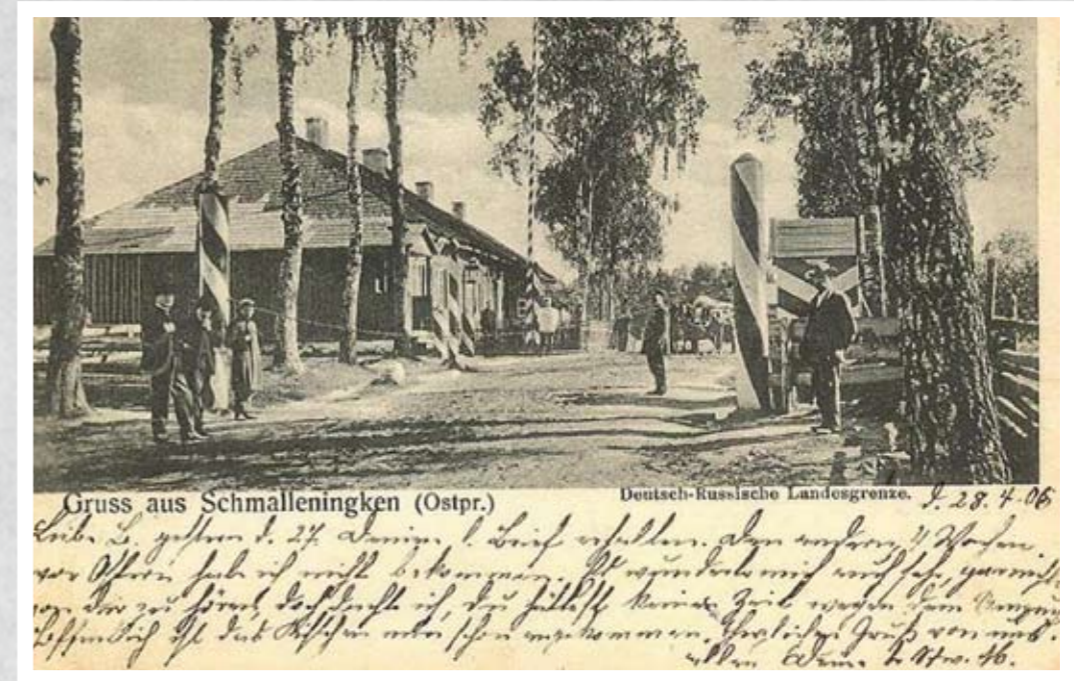 Gruss aus Schmalleningken (Ostpr.)
Deutsch-Russische Landesgrenze.
d. 28.4.06
gestern d. 27. l. Brief erhalten. Den andern, 4 Wochen
vor Ostern habe ich nicht bekommen. Es wunderte mich auch sehr, gar nichts
von Dir zu hören, doch dachte ich, du hättest keine Zeit wegen dem Umzug
Hoffentlich ist das Kistchen nun schon angekommen. Gruß von uns
allen Deine